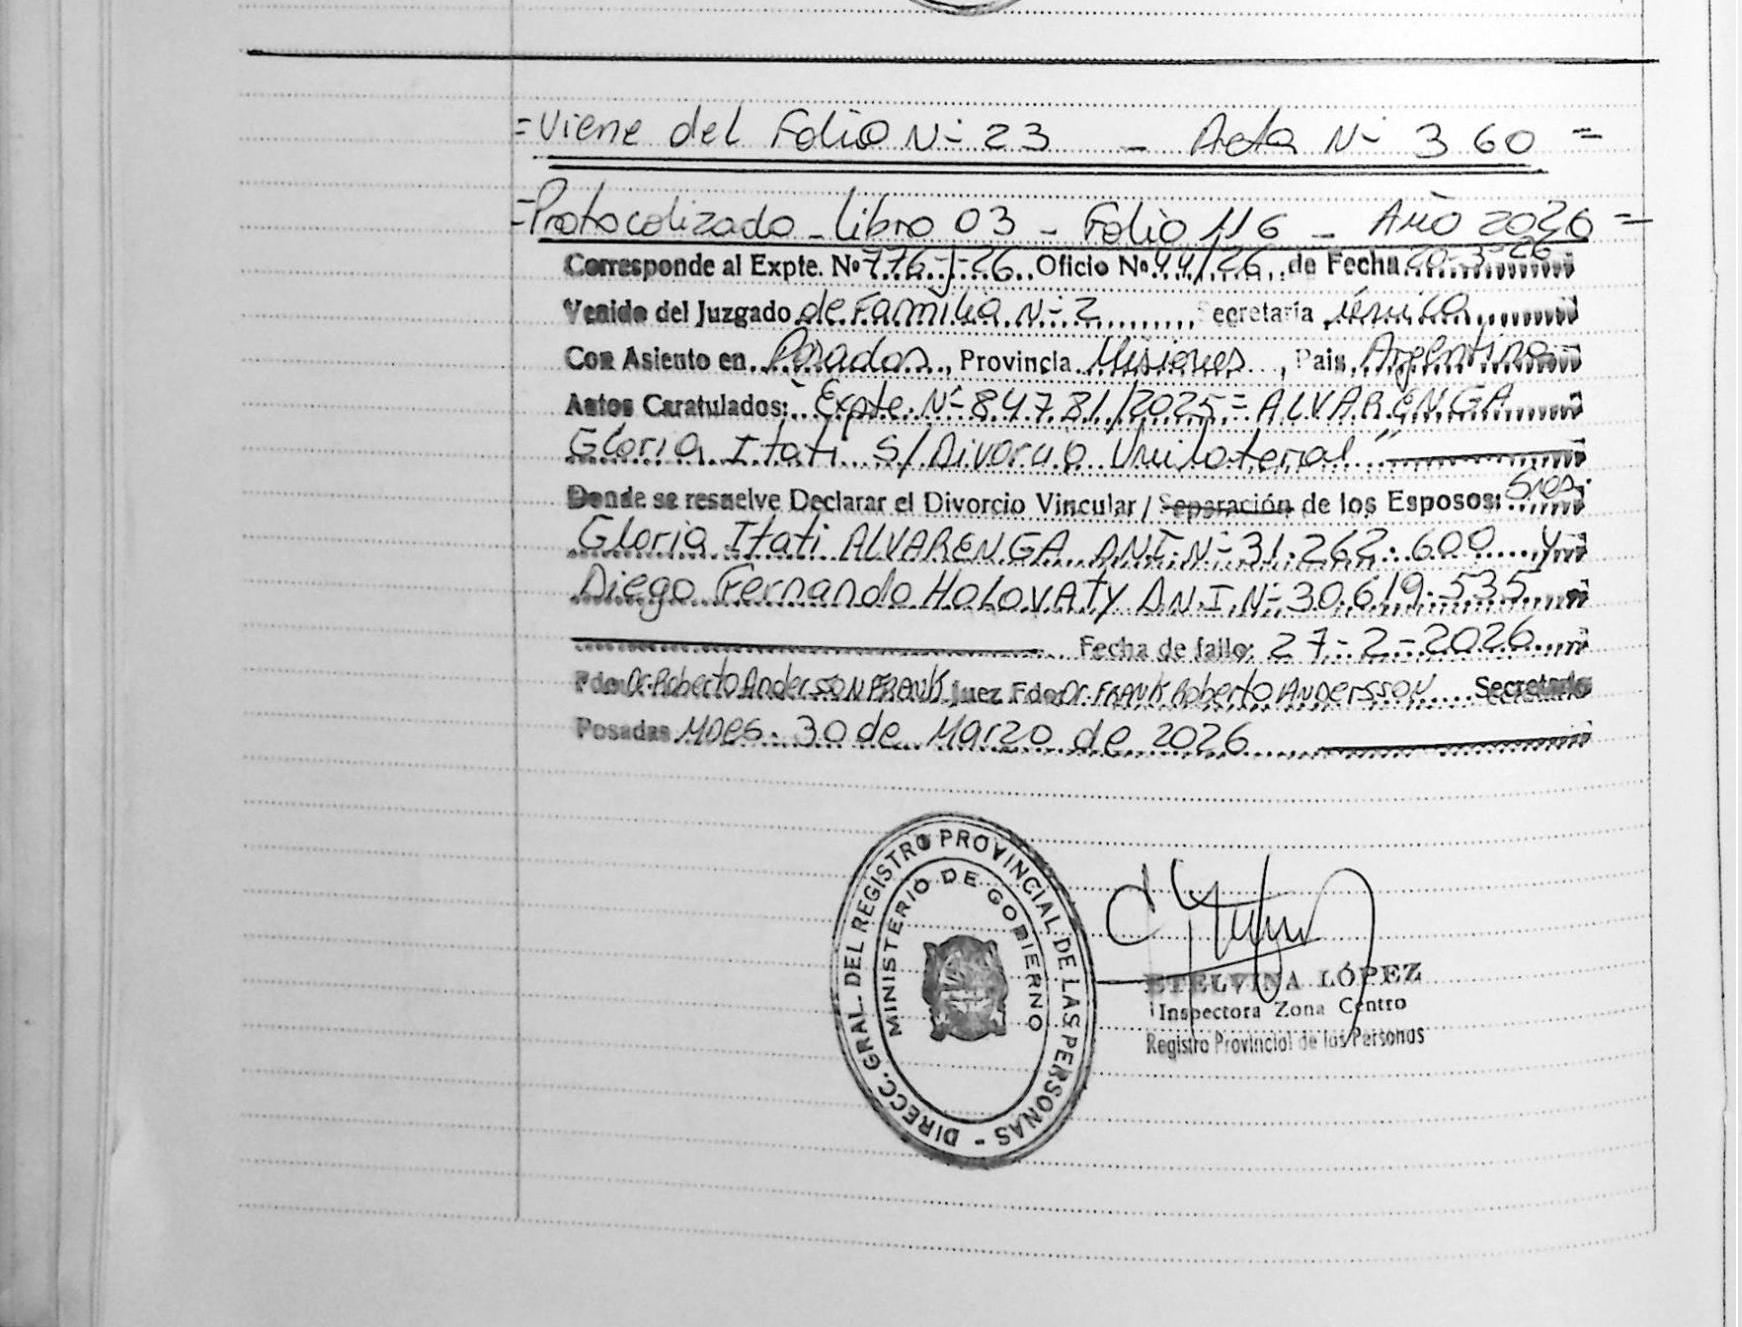 =Viene del Folio Nº 23 - Acta Nº 360 =
=Protocolizado - Libro 03 - Folio 116 - Año 2026 =
Corresponde al Expte. Nº 776-J-26 Oficio Nº 44/26 de Fecha 20-3-26
Venido del Juzgado de Familia Nº 2 Secretaría única
Con Asiento en Posadas, Provincia Misiones, País Argentina
Autos Caratulados: "Expte. Nº 84781/2025 = ALVARENGA
Gloria Itati S/Divorcio Unilateral"
Donde se resuelve Declarar el Divorcio Vincular / Separación de los Esposos: Sres.
Gloria Itati ALVARENGA DNI. Nº 31.262.600 y
Diego Fernando HOLOVATY D.N.I. Nº 30.619.535
Fecha de fallo: 27-2-2026
Fdo Dr. Roberto Andersson FRANK Juez Fdo: Dr. FRANK Roberto ANDERSSON Secretario
Posadas Mnes. 30 de Marzo de 2026
DIRECC. GRAL. DEL REGISTRO PROVINCIAL DE LAS PERSONAS -
MINISTERIO DE GOBIERNO
ETELVINA LÓPEZ
Inspectora Zona Centro
Registro Provincial de las Personas